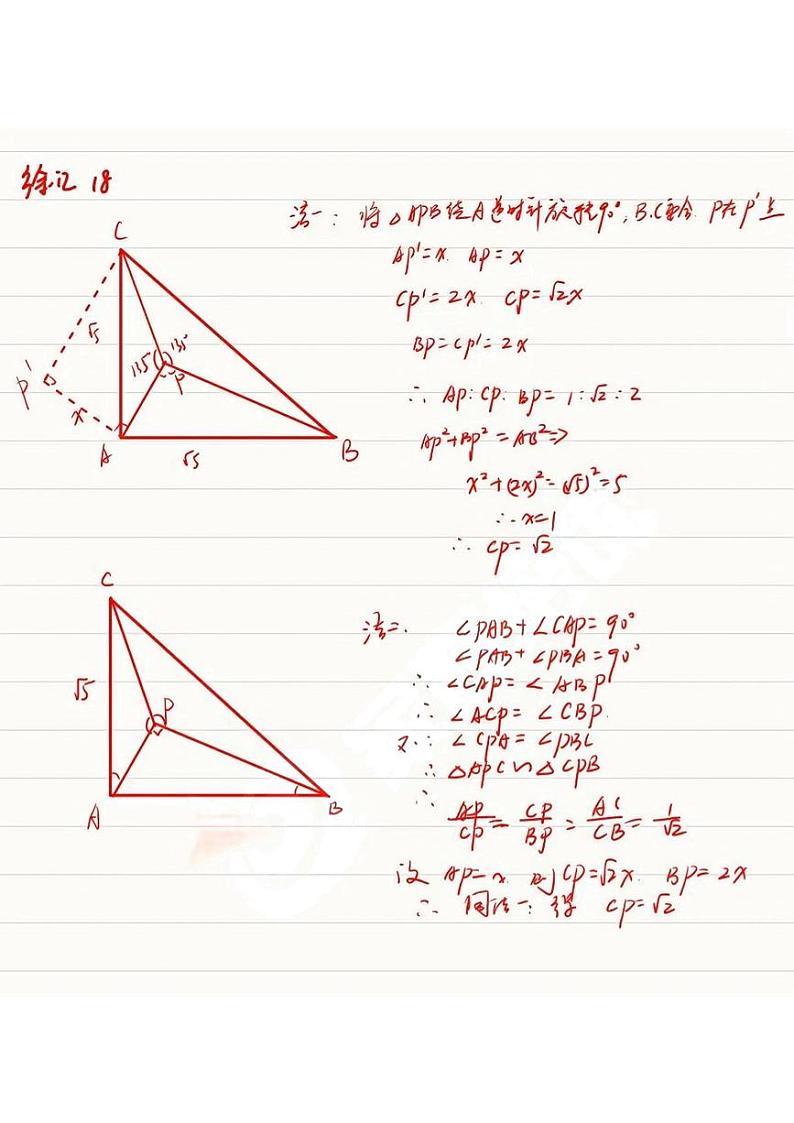 徐汇 18
法一: 将△APB绕A逆时针旋转90°, B.C重合. P在P'点
AP'=x. AP=x
CP'=2x. CP=√2x
BP=CP'=2x
∴ AP:CP:BP=1:√2:2
AP²+BP²=AB²⇒
x²+(2x)²=(√5)²=5
∴x=1
∴ CP=√2
C
√5
135°
135°
P
P'
x
A
√5
B
法二. ∠PAB+∠CAP=90°
∠PAB+∠PBA=90°
∴ ∠CAP=∠ABP
∴ ∠ACP=∠CBP.
又∵ ∠CPA=∠PBC
∴ △APC∽△CPB
∴ AP/CP=CP/BP=AC/CB=1/√2
设 AP=x. 则CP=√2x. BP=2x
∴ 同法一: 得 CP=√2
C
√5
P
A
B